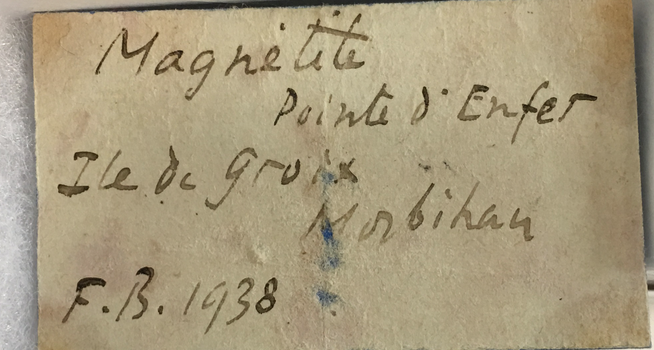 Magnétite
Pointe d'Enfer
Ile de Groix
Morbihan
F.B. 1938